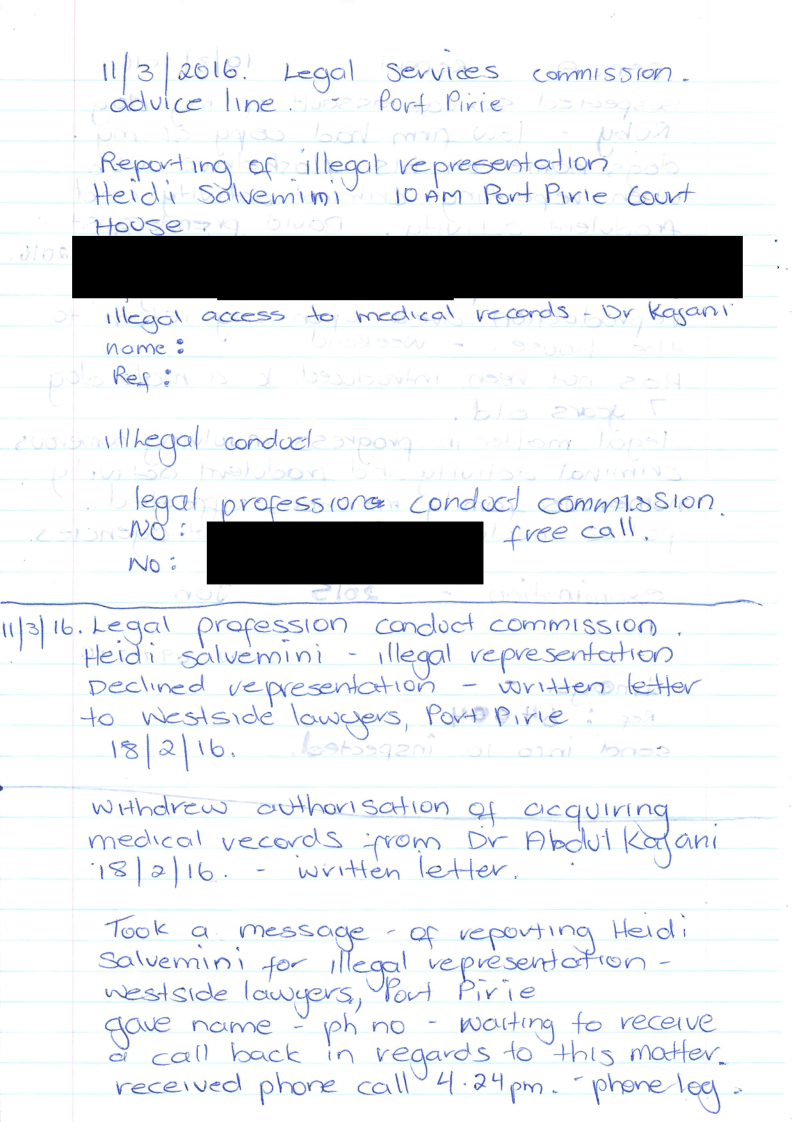 11/3/2016. Legal Services commission.
advice line. - Port Pirie
Reporting of illegal representation
Heidi Salvemini 10AM Port Pirie Court
House.
illegal access to medical records - Dr Kajani
name:
Ref:
illhegal conduct
legal profession conduct commission.
NO: free call.
No:
11/3/16. Legal profession conduct commission.
Heidi Salvemini - illegal representation
Declined representation - written letter
to Westside lawyers, Port Pirie
18/2/16.
Withdrew authorisation of acquiring
medical records from Dr Abdul Kajani
18/2/16. - written letter.
Took a message - of reporting Heidi
Salvemini for illegal representation -
Westside lawyers, Port Pirie
gave name - ph no - waiting to receive
a call back in regards to this matter.
received phone call 4.24pm. - phone log.